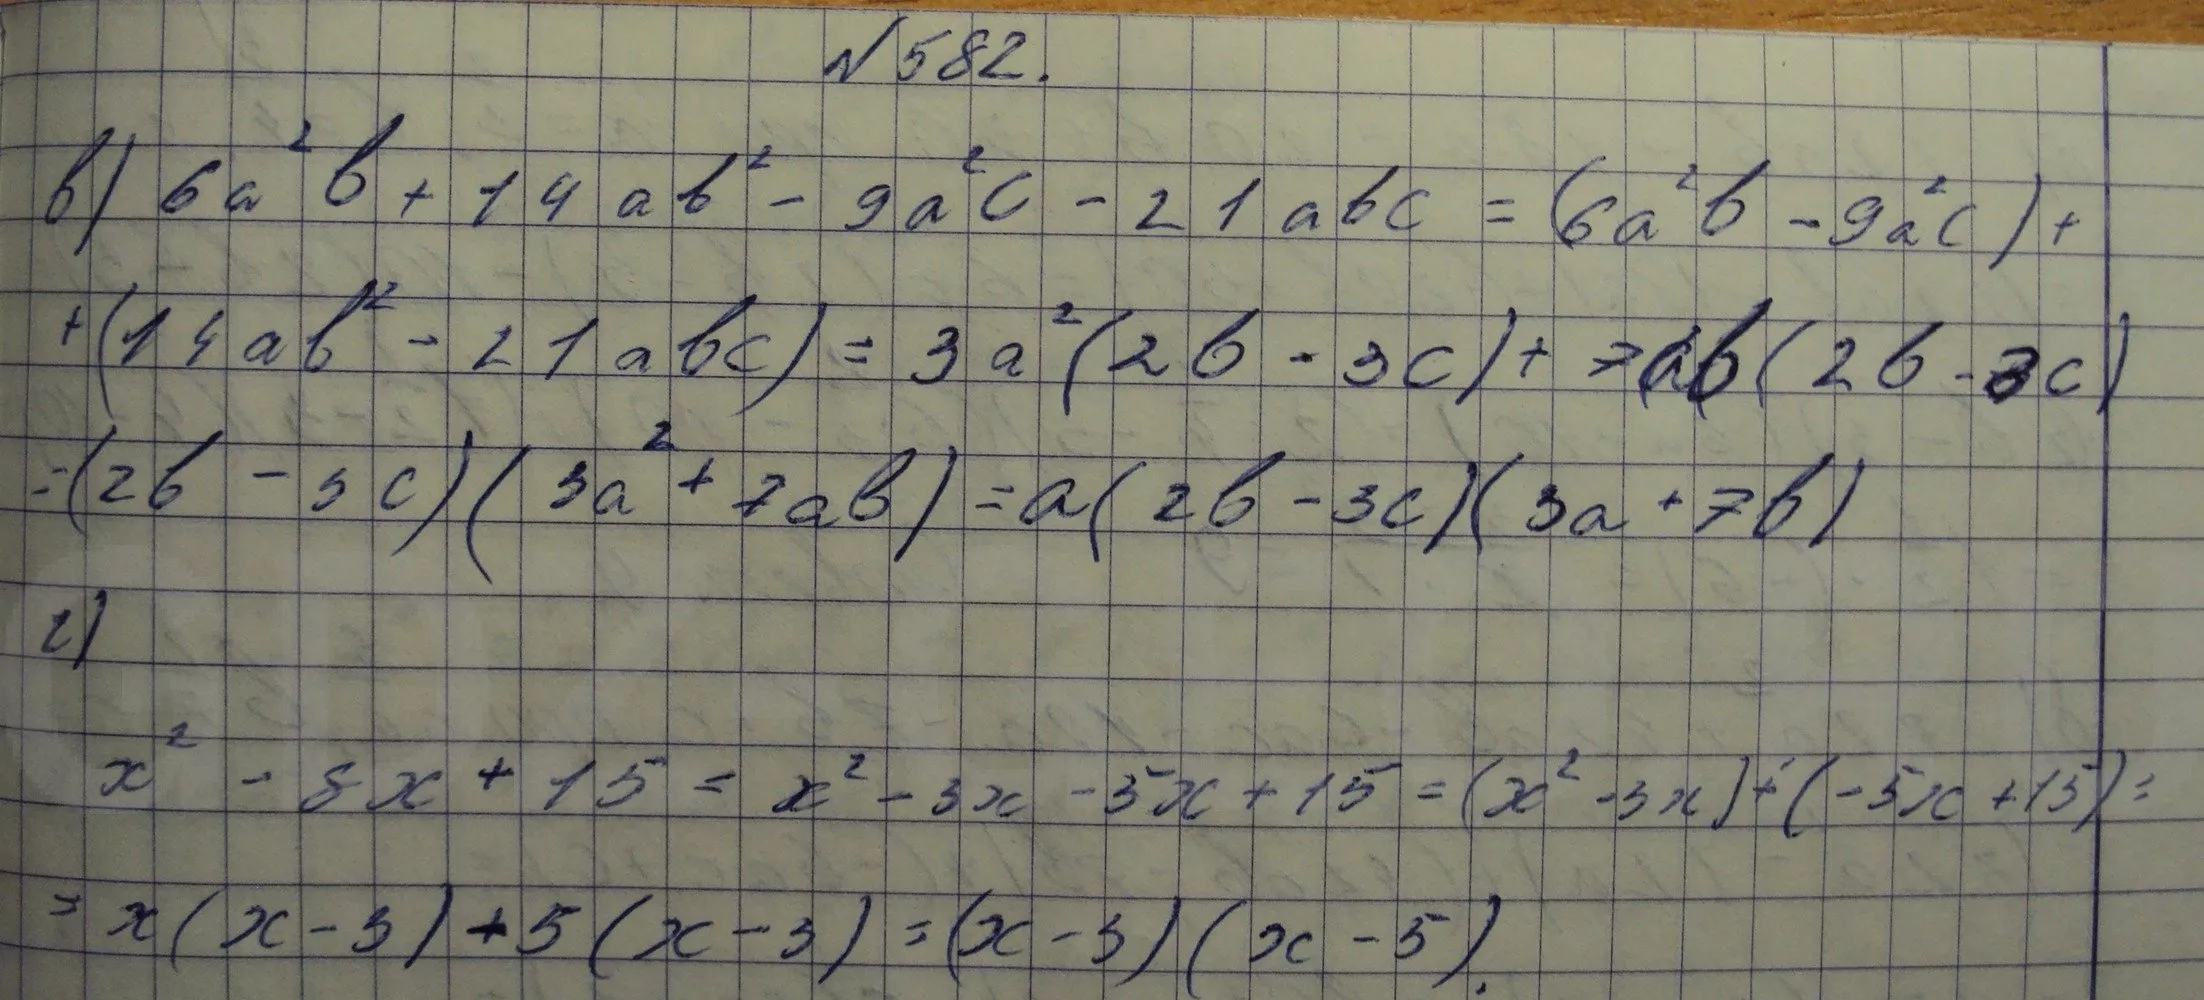 №582.
в) 6a²b + 14ab² - 9a²c - 21abc = (6a²b - 9a²c) +
+ (14ab² - 21abc) = 3a²(2b - 3c) + 7ab(2b - 3c)
= (2b - 3c)(3a² + 7ab) = a(2b - 3c)(3a + 7b)
г)
x² - 8x + 15 = x² - 3x - 5x + 15 = (x² - 3x) + (-5x + 15) =
= x(x - 3) + 5(x - 3) = (x - 3)(x - 5).